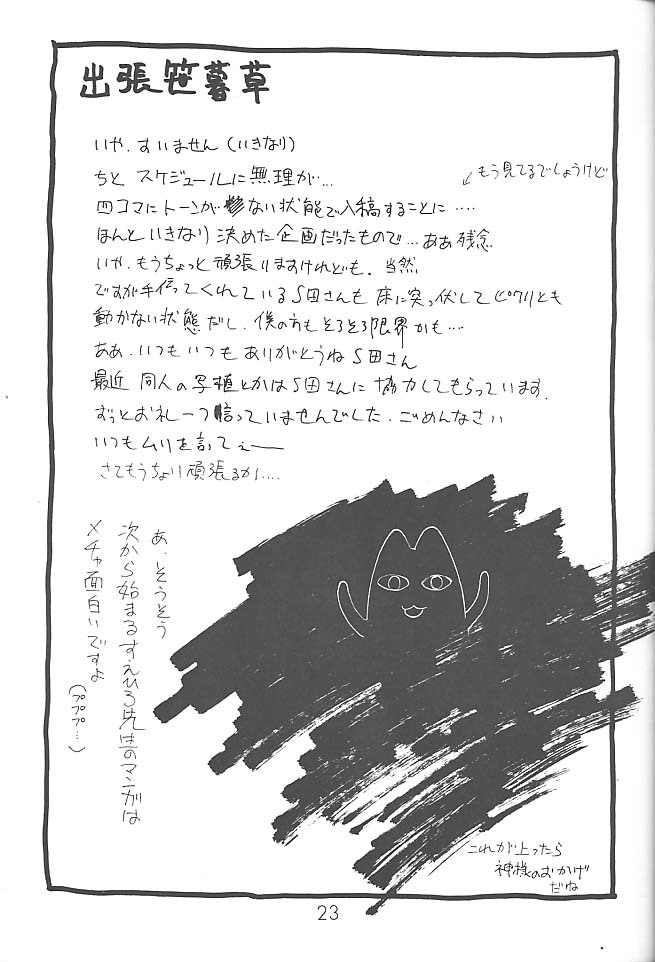 出張笹暮草
いや、すいません(いきなり)
ちと スケジュールに無理が…
↙もう見てるでしょうけど
四コマにトーンがない状態で入稿することに‥‥
ほんといきなり決めた企画だったもので…ああ残念
いや、もうちょっと頑張りますけれども、当然
ですが手伝ってくれているS田さんも 床に突っ伏してピクリとも
動かない状態だし、僕の方もそろそろ限界かも…
ああ、いつもいつも ありがとうねS田さん
最近 同人の写植とかはS田さんに 協力してもらっています.
ずっとお礼一つ言っていませんでした、ごめんなさい
いつもムリを言ってぇ――
さてもうちょい頑張るか‥‥
あ、そうそう
次から始まるすえひろ先生のマンガは
メチャ面白いですよ
(ププププ…)
これが上ったら
神様のおかげ
だね
23